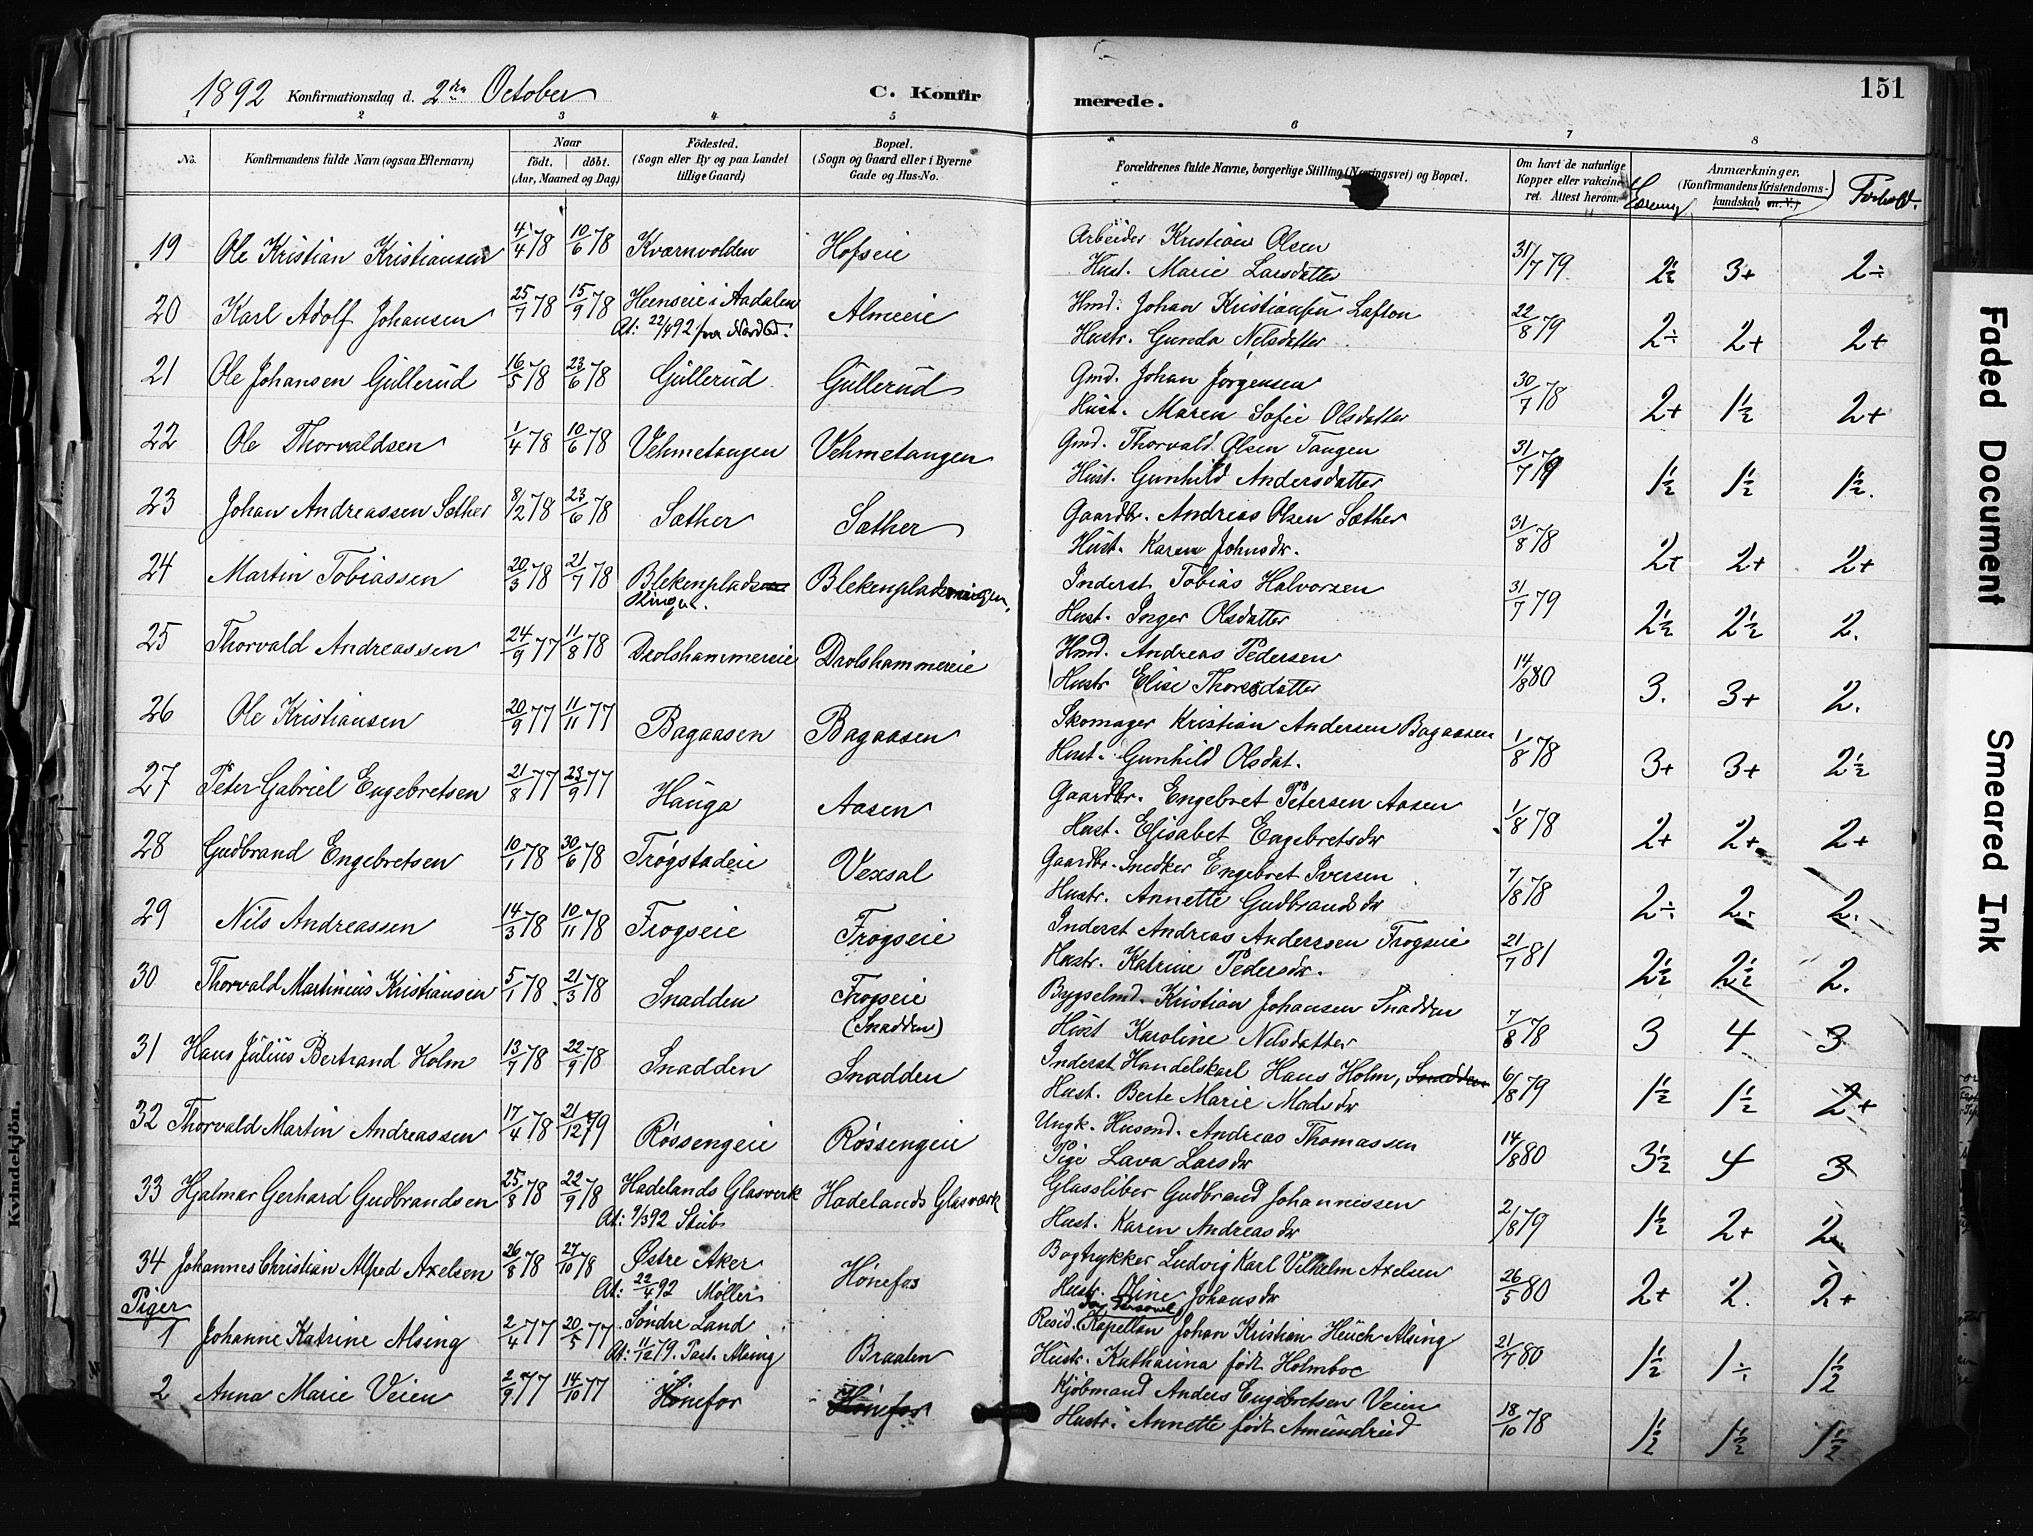 1892 Konfirmationsdag d. 2den October C. Konfirmerede. 151
1 2 3 4 5 6 7 8
No. Konfirmandens fulde Navn (ogsaa Efternavn) Naar födt. döbt. (Aar, Maaned og Dag) Födested. (Sogn eller By og paa Landet tillige Gaard) Bopæl. (Sogn og Gaard eller i Byerne Gade og Hus-No. Forældrenes fulde Navne, borgerlige Stilling (Næringsvei) og Bopæl. Om havt de naturlige Kopper eller vaccineret. Attest herom. Anmærkninger. (Konfirmandens Kristendomskundskab m. V.) Forhold.
19 Ole Kristian Kristiansen 4/4 78 10/6 78 Kværnvolden Hofseie Arbeider Kristian Olsen 31/7 79 2½ 3+ 2÷
Hust. Marie Larsdatter
20 Karl Adolf Johansen 25/7 78 15/9 78 Heenseie i Aadalen Almeeie Hmd. Johan Kristiansen Lafton 22/8 79 2÷ 2+ 2+
At: 22/4 92 fra Nordbd. Hustr. Gunda Nilsdatter
21 Ole Johansen Gullerud 16/5 78 23/6 78 Gullerud Gullerud Gmd. Johan Jørgensen 30/7 78 2+ 1½ 2+
Hust. Maren Sofie Olsdatter
22 Ole Thorvaldsen 1/4 78 10/6 78 Vehmetangen Vehmetangen Gmd. Thorvald Olsen Tangen 31/7 79 1½ 1½ 1½.
Hust. Gunhild Andersdatter
23 Johan Andreassen Sæther 8/2 78 23/6 78 Sæther Sæther Gaardbr. Andreas Olsen Sæther 31/8 78 2+ 2+ 2+
Hust. Karen Johnsdr.
24 Martin Tobiassen 20/3 78 21/7 78 Blekenplads Blekenplads Inderst Tobias Halvorsen 31/7 79 2½ 2½ 2.
Hust. Inger Olsdatter
25 Thorvald Andreassen 24/9 77 11/8 78 Drolshammereie Drolshammereie Hmd. Andreas Pedersen 14/8 80 3. 3+ 2.
Hustr Elise Thoresdatter
26 Ole Kristiansen 20/9 77 11/11 77 Bagaasen Bagaasen Skomager Kristian Andersen Bagaasen 1/8 78 3+ 3+ 2½
Hust. Gunhild Olsdat.
27 Peter Gabriel Engebretsen 21/8 77 23/9 77 Hauga Aasen Gaardbr. Engebret Petersen Aasen 1/8 78 2+ 2+ 2+
Hust. Elisabet Engebretsdr
28 Gudbrand Engebretsen 10/1 78 30/6 78 Trøgstadeie Vexsal Gaardbr. Snedker Engebret Iversen 7/8 78 2÷ 2. 2.
Hustr. Annette Gudbrandsdr
29 Nils Andreassen 14/3 78 10/11 78 Frogseie Frogseie Inderst Andreas Anderssen Frogseie 21/7 81 2½ 2½ 2.
Hustr. Katrine Pedersdr.
30 Thorvald Martinius Kristiansen 5/1 78 21/3 78 Snadden Frogseie Bygselmd. Kristian Johansen Snadden 7/8 78 3 4 3
(Snadden) Hust Karoline Nilsdatter
31 Hans Julius Bertrand Holm 13/7 78 22/9 78 Snadden Snadden Inderst Handelskarl Hans Holm, Snadden 6/8 79 1½ 1½ 2+
Hust. Berte Marie Madsdr
32 Thorvald Martin Andreassen 17/4 78 21/12 79 Røssengeie Røssengeie Ungk. Husmd. Andreas Thomassen 14/8 80 3½ 4 3
Pige Lava Larsdr
33 Hjalmar Gerhard Gudbrandsen 25/8 78 22/9 78 Hadelands Glasverk Hadelands Glasverk Glassliber Gudbrand Johannessen 2/8 79 1½ 2+ 2.
At: 9/3 92 Stub Hust. Karen Andreasdr
34 Johannes Christian Alfred Axelsen 26/8 78 27/10 78 Østre Aker Hønefos Bogtrykker Ludvig Karl Vilhelm Axelsen 26/5 80 2+ 2. 2+
At: 22/4 92 Møller Hustr. Mine Johansdr
Piger
1 Johanne Katrine Alsing 2/4 77 20/5 77 Søndre Land Braaten Resid. Kapellan Johan Kristian Heuch Alsing 21/7 80 1½ 1÷ 1½
At: 11/12 79. Past. Alsing og Personel Hustr. Katharina født Holmboe
2 Anna Marie Veien 2/9 77 14/10 77 Hønefos Hønefos Kjøbmand Anders Engebretsen Veien 18/10 78 1½ 1½ 1½.
Hustr. Annette født Amundrud
Kvindekjön.
Faded Document
Smeared Ink